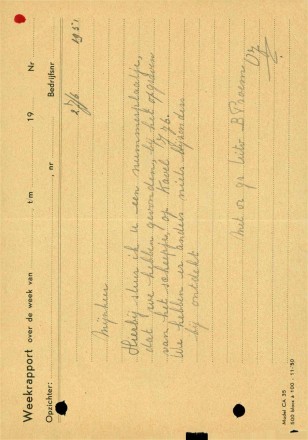 Weekrapport over de week van t/m 19 Nr
Opzichter: , nr Bedrijfsnr
27/6 1951
Mijnheer
Hierbij stuur ik u een nummerplaatje,
dat we hebben gevonden, bij het opgraven
van het scheepje, op Kavel
We hebben er anders niets bijzonders
bij ontdekt
Met
Model CA 35
500 blocs à 100 - 11-'50